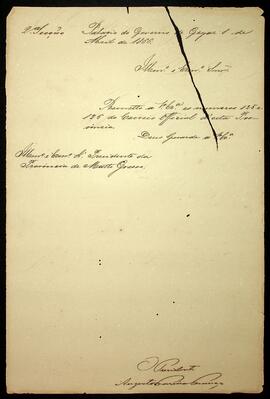 2ª Secção Palacio do Governo de Goyaz 1 de
Abril de
Illmo. e Exmo. Snr.
Remetto a V. Exª. os numeros 125 e
126 do Correio Official desta Pro-
vincia.
Deus Guarde a V. Exª.
Illmo. e Exmo. Sr. Presidente da
Provincia de Matto Grosso.
O Presidente
Augusto